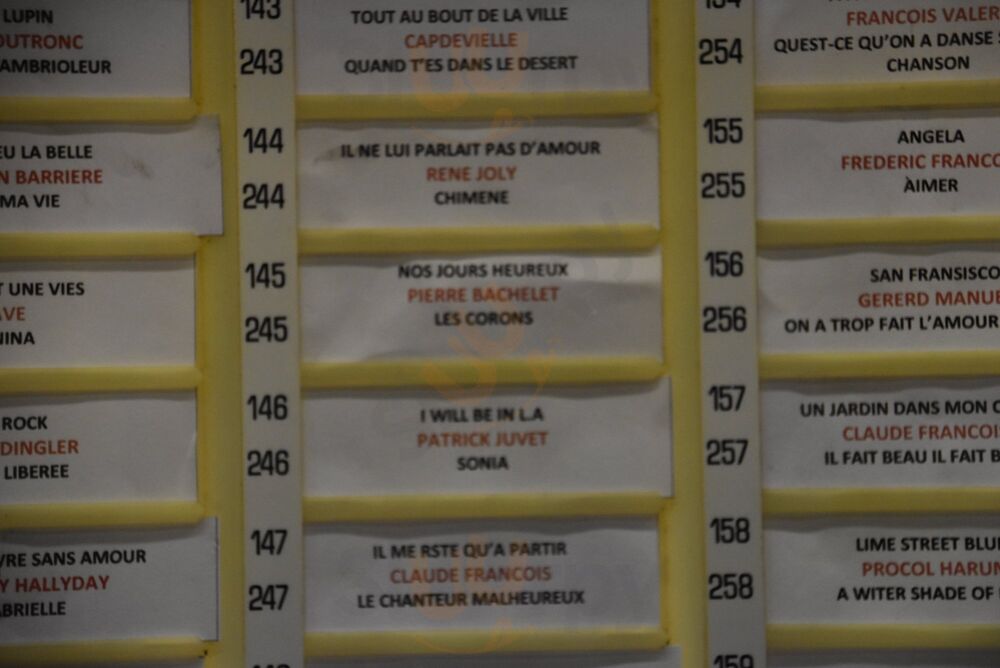 LUPIN
OUTRONC
AMBRIOLEUR
EU LA BELLE
N BARRIERE
MA VIE
T UNE VIES
AVE
NINA
ROCK
DINGLER
LIBEREE
VRE SANS AMOUR
Y HALLYDAY
ABRIELLE
143
243
TOUT AU BOUT DE LA VILLE
CAPDEVIELLE
QUAND T'ES DANS LE DESERT
144
244
IL NE LUI PARLAIT PAS D'AMOUR
RENE JOLY
CHIMENE
145
245
NOS JOURS HEUREUX
PIERRE BACHELET
LES CORONS
146
246
I WILL BE IN L.A
PATRICK JUVET
SONIA
147
247
IL ME RSTE QU'A PARTIR
CLAUDE FRANCOIS
LE CHANTEUR MALHEUREUX
154
254
FRANCOIS VALER
QUEST-CE QU'ON A DANSE
CHANSON
155
255
ANGELA
FREDERIC FRANCO
ÀIMER
156
256
SAN FRANSISCO
GERERD MANUE
ON A TROP FAIT L'AMOUR
157
257
UN JARDIN DANS MON
CLAUDE FRANCOIS
IL FAIT BEAU IL FAIT B
158
258
LIME STREET BLUE
PROCOL HARUM
A WITER SHADE OF
159